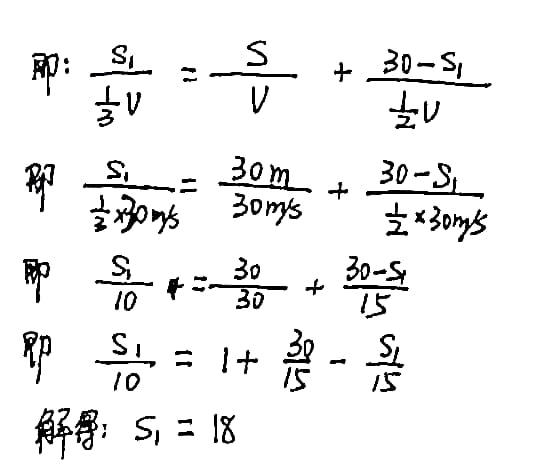 即: S₁/(1/3 V) = S/V + (30-S₁)/(1/2 V)
即 S₁/(1/3 ×30m/s) = 30m/30m/s + (30-S₁)/(1/2 ×30m/s)
即 S₁/10 = 30/30 + (30-S₁)/15
即 S₁/10 = 1 + 30/15 - S₁/15
解得: S₁ = 18